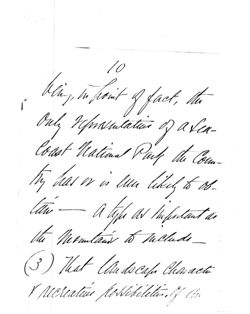 10
being, in point of fact, the
only representative of a Sea-
Coast National Park the Coun-
try has or is ever likely to ob-
tain — a type as important as
the Mountains to include —
(3) That landscape character
& recreative possibilities of